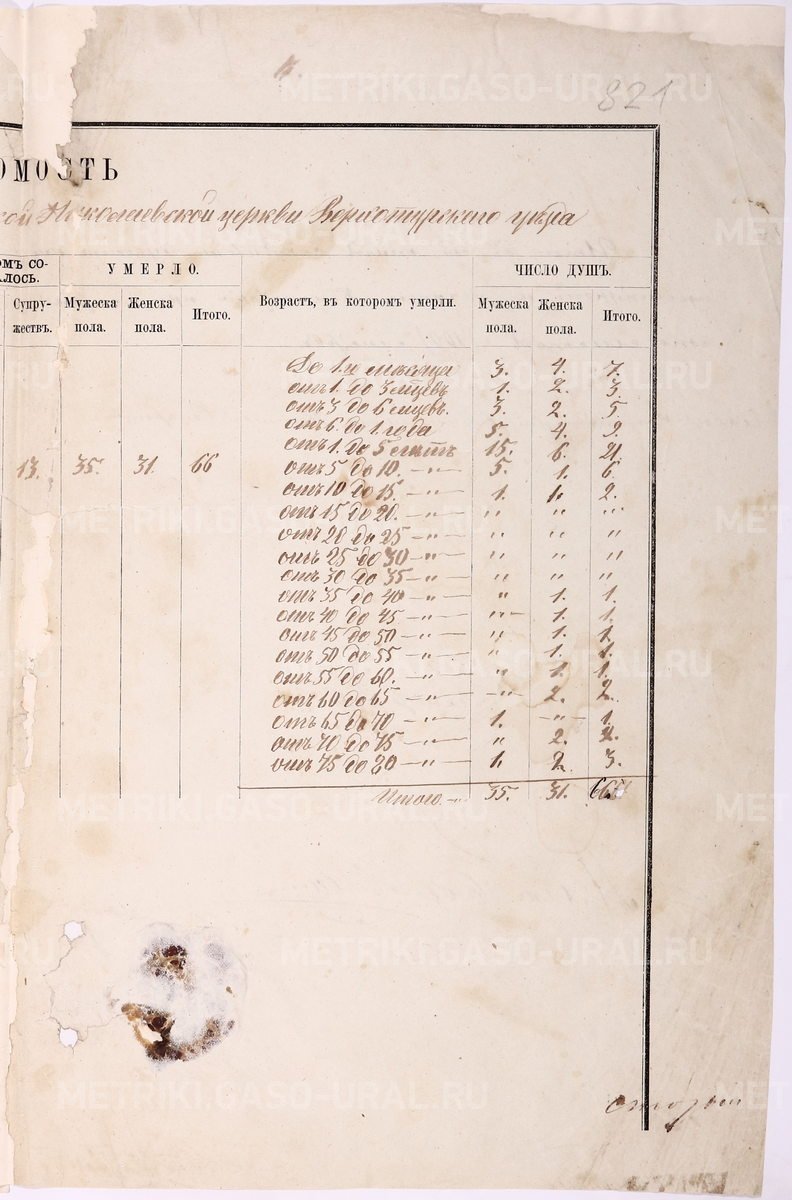 821
ОМОСТЬ
кой Николаевской церкви Верхотурскаго уѣзда
ОМЪ СО-
ЛОСЬ.
УМЕРЛО.
ЧИСЛО ДУШЪ.
Супру-
жествъ.
Мужеска
пола.
Женска
пола.
Итого.
Возрастъ, въ которомъ умерли.
Мужеска
пола.
Женска
пола.
Итого.
До 1го мѣсяца 3. 4. 7.
отъ 1. до 3 мцевъ 1. 2. 3.
отъ 3 до 6 мцевъ. 3. 2. 5
отъ 6. до 1 года 5. 4. 9.
отъ 1. до 5 лѣтъ 15. 6. 21.
13. 35. 31. 66
отъ 5 до 10. —"— 5. 1. 6.
отъ 10 до 15. —"— 1. 1. 2.
отъ 15 до 20. —"— " " "
отъ 20 до 25 —"— " " "
отъ 25 до 30 —"— " " "
отъ 30 до 35 —"— " " "
отъ 35 до 40 —"— " 1. 1.
отъ 40 до 45 —"— " 1. 1.
отъ 45 до 50 —"— " 1. 1.
отъ 50 до 55 —"— " 1. 1.
отъ 55 до 60. —"— " 1. 1.
отъ 60 до 65 —"— " 2. 2.
отъ 65 до 70 —"— 1. —"— 1.
отъ 70 до 75 —"— " 2. 2.
отъ 75 до 80 —"— 1. 2. 3.
Итого —"— 35. 31. 66
METRIKI.GASO-URAL.RU